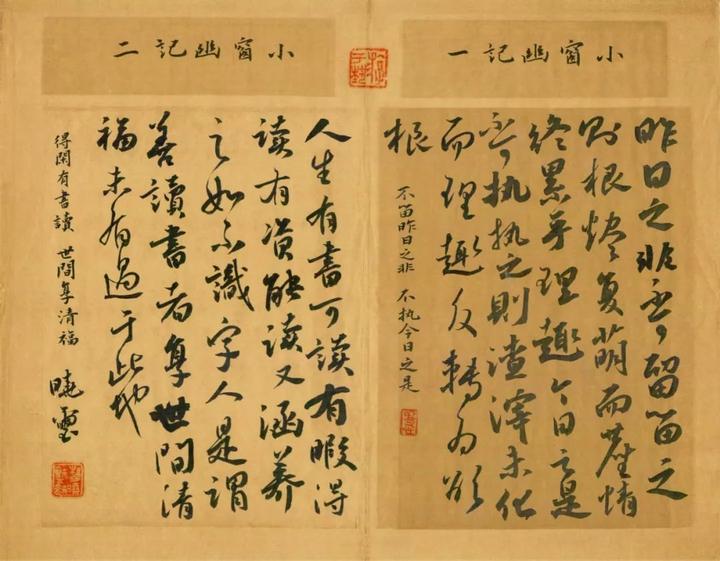 小窗幽記一
昨日之非不可留留之
則根燼复萌而塵情
終累乎理趣今日之是
不可执执之則渣滓未化
而理趣反轉为欲
根
不留昨日之非 不执今日之是
小窗幽記二
人生有書可讀有暇得
读有資能读又涵養
之如不識字人是謂
善讀書者享世間清
福未有過于此也
得閑有書讀 世間享清福
曉